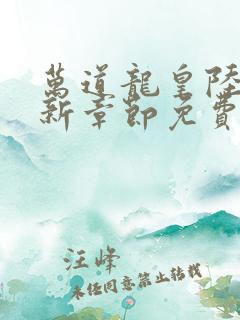 萬道龍皇陸
新章節免費
汪峰
未經同意禁止轉載